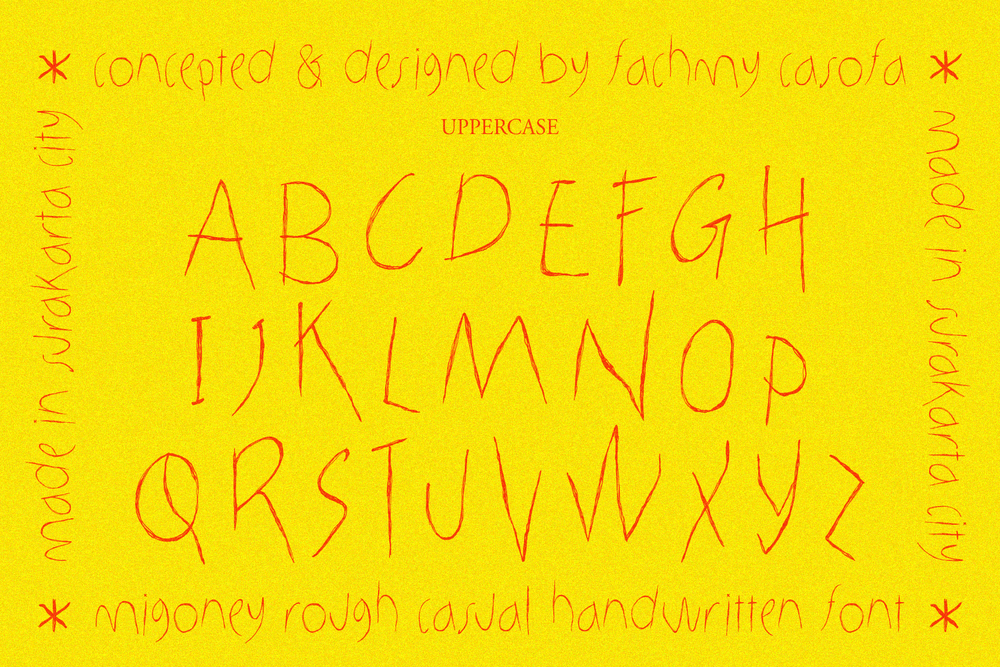 * concepted & designed by fachmy casofa *
made in surakarta city
UPPERCASE
made in surakarta city
ABCDEFGH
IJKLMNOP
QRSTUVWXYZ
* migoney rough casual handwritten font *